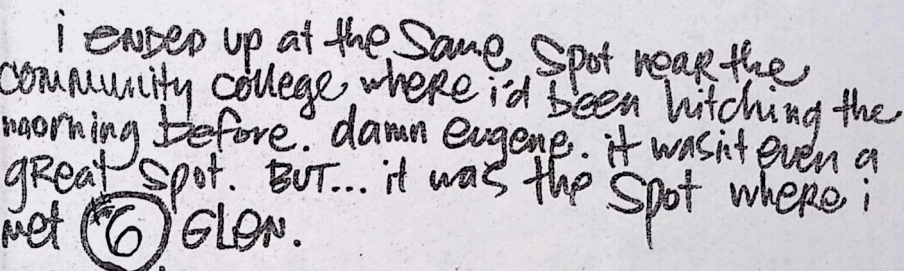 i ENDED up at the Same Spot neaR the
COMMUNity college wheRe i'd been hitching the
moorning before. damn eugene. it wasn't even a
gReat Spot. BUT... it was the Spot where i
met 6 GLEN.